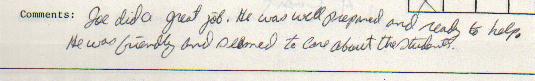 Comments: Joe did a great job. He was well prepared and ready to help.
He was friendly and seemed to care about the students.